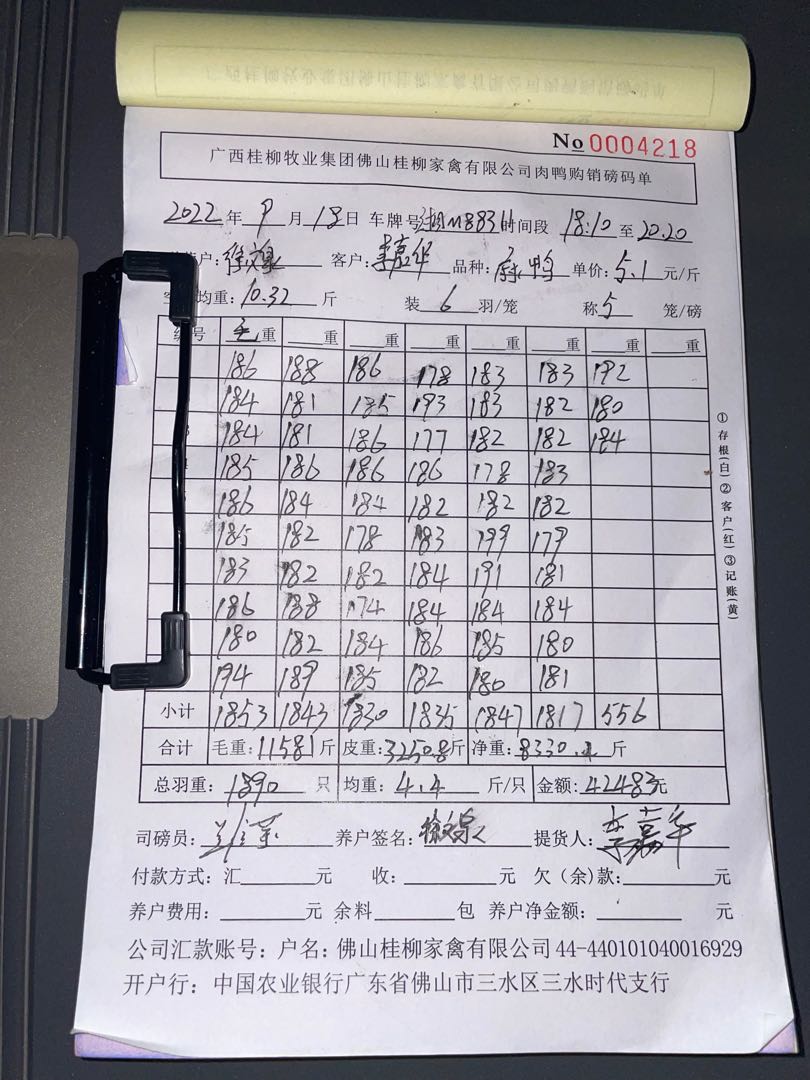 No 0004218
广西桂柳牧业集团佛山桂柳家禽有限公司肉鸭购销磅码单
2022 年 9 月 18 日 车牌号 时间段 18:10 至 20.20
户: 客户: 李嘉华 品种: 鸭 单价: 5.1 元/斤
均重: 10.32 斤 装 6 羽/笼 称 5 笼/磅
编号 毛重 重 重 重 重 重 重 重
186 188 186 178 183 183 192
184 181 185 193 183 182 180
184 181 186 177 182 182 184
185 186 186 186 178 183
186 184 184 182 182 182
185 182 178 183 199 179
183 182 182 184 191 181
186 188 174 184 184 184
180 182 184 186 185 180
194 189 185 182 180 181
小计 1853 1843 1830 1835 1847 1817 556
合计 毛重: 11581 斤 皮重: 3250.8 斤 净重: 8330. 斤
总羽重: 1890 只 均重: 4.4 斤/只 金额: 42483 元
司磅员: 养户签名: 提货人: 李嘉华
付款方式: 汇 元 收: 元 欠(余)款: 元
养户费用: 元 余料 包 养户净金额: 元
公司汇款账号: 户名: 佛山桂柳家禽有限公司 44-440101040016929
开户行: 中国农业银行广东省佛山市三水区三水时代支行
①存根(白)②客户(红)③记账(黄)